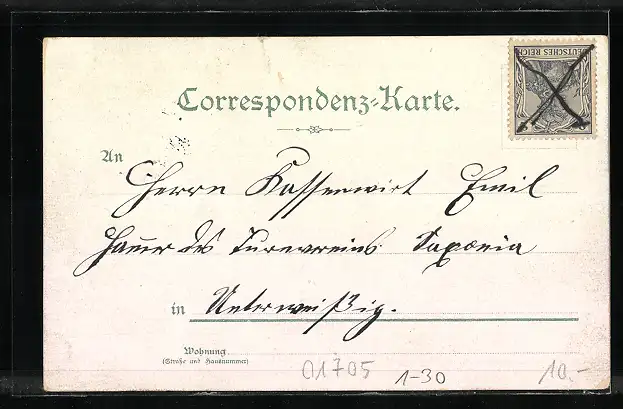 DEUTSCHES REICH
Correspondenz-Karte.
An
Herrn Kassenwirt Emil
Hauer des Turnvereins Saxonia
in Unterweißig.
Wohnung
(Straße und Hausnummer)
01705 1-30 10.-